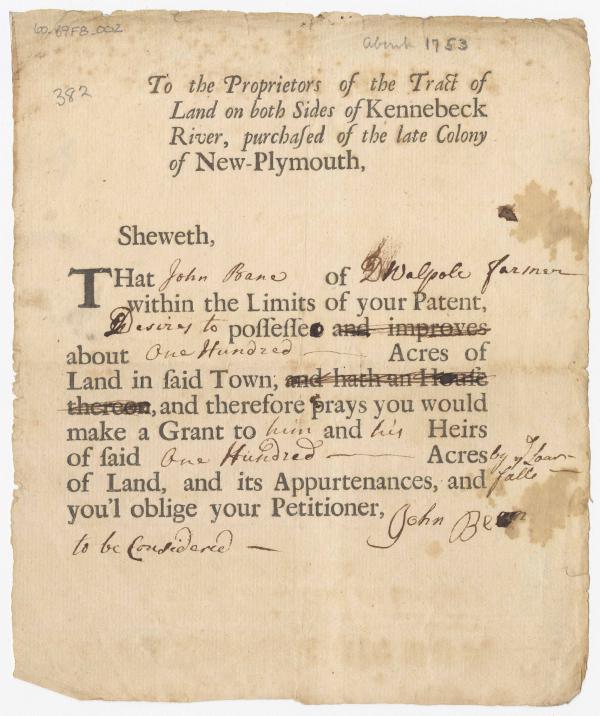 60.89FB.002
About 1753
382
To the Proprietors of the Tract of
Land on both Sides of Kennebeck
River, purchaſed of the late Colony
of New-Plymouth,
Sheweth,
THat John Bane of Walpole farmer
within the Limits of your Patent,
Desires to poſſeſſe and improves
about One Hundred Acres of
Land in ſaid Town, and hath an Houſe
thereon, and therefore prays you would
make a Grant to him and his Heirs
of ſaid One Hundred Acres by yͤ
of Land, and its Appurtenances, and falls
you'l oblige your Petitioner, John
to be Considered